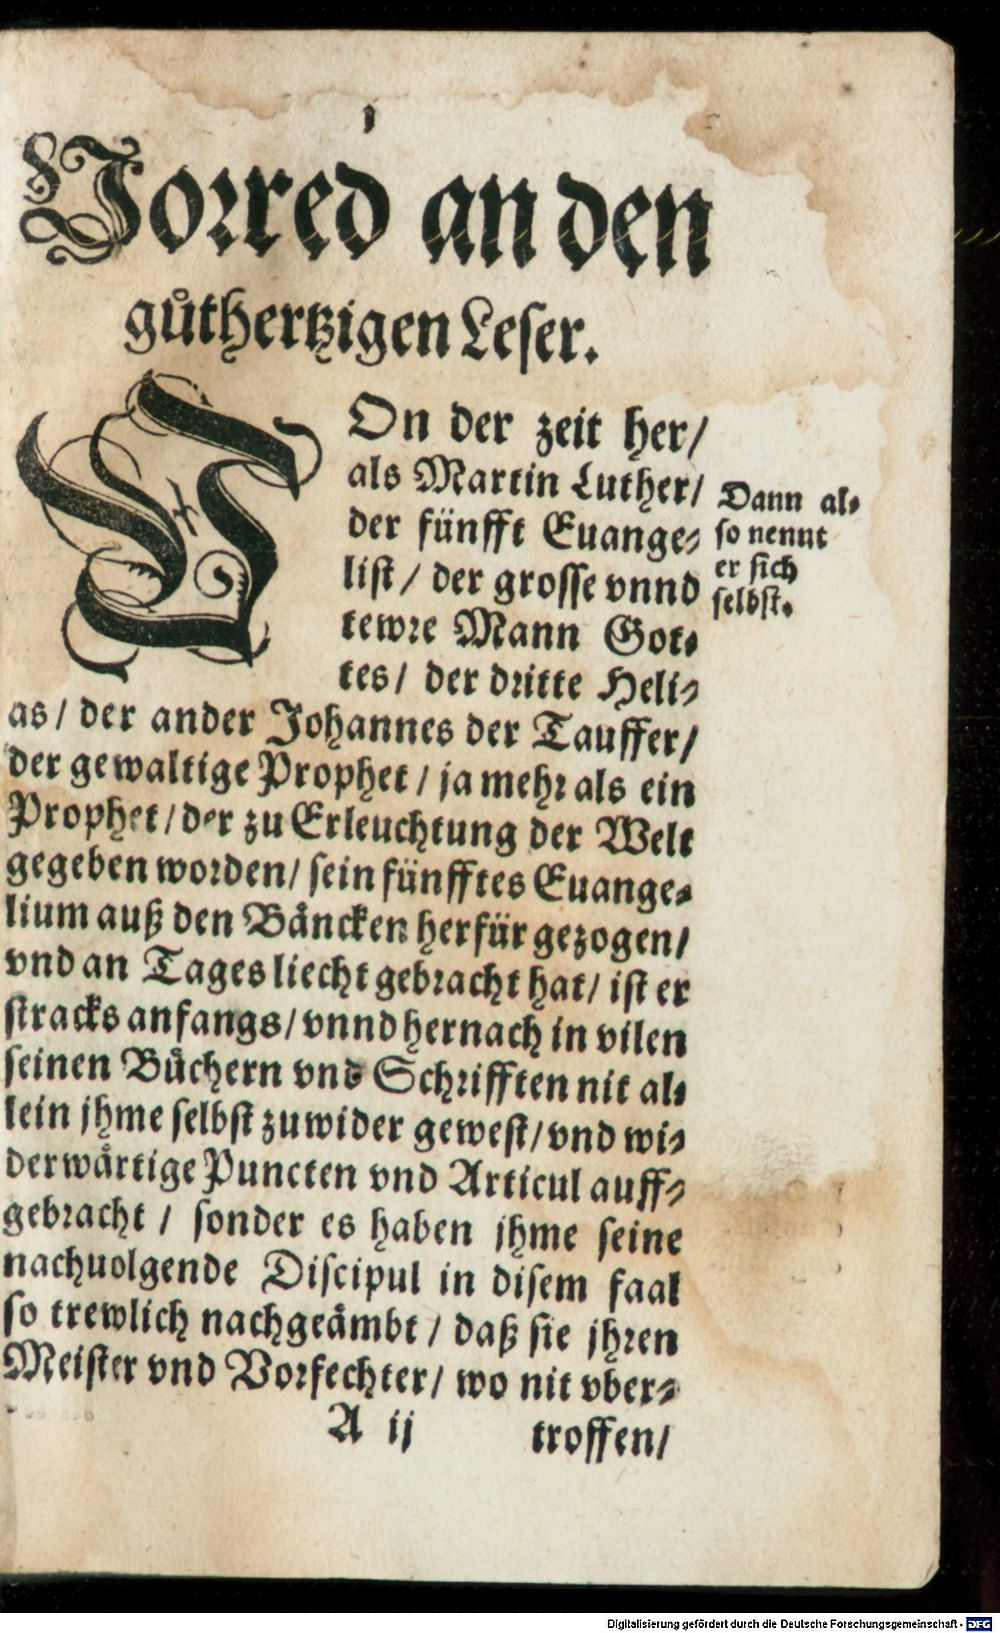 1
Vorred an den
gůthertzigen Leser.
VOn der zeit her/
als Martin Luther/
der fünfft Euange-
list / der grosse vnnd
tewre Mann Got-
tes / der dritte Heli-
as / der ander Johannes der Tauffer/
der gewaltige Prophet / ja mehr als ein
Prophet / der zu Erleuchtung der Welt
gegeben worden / sein fünfftes Euange-
lium auß den Bäncken herfür gezogen /
vnd an Tages liecht gebracht hat / ist er
stracks anfangs / vnnd hernach in vilen
seinen Büchern vnd Schrifften nit al-
lein jhme selbst zuwider gewest / vnd wi-
derwärtige Puncten vnd Articul auff-
gebracht / sonder es haben jhme seine
nachuolgende Discipul in disem faal
so trewlich nachgeämbt / daß sie jhren
Meister vnd Vorfechter / wo nit vber-
A ij troffen /
Dann al-
so nennt
er sich
selbst.
Digitalisierung gefördert durch die Deutsche Forschungsgemeinschaft - DFG